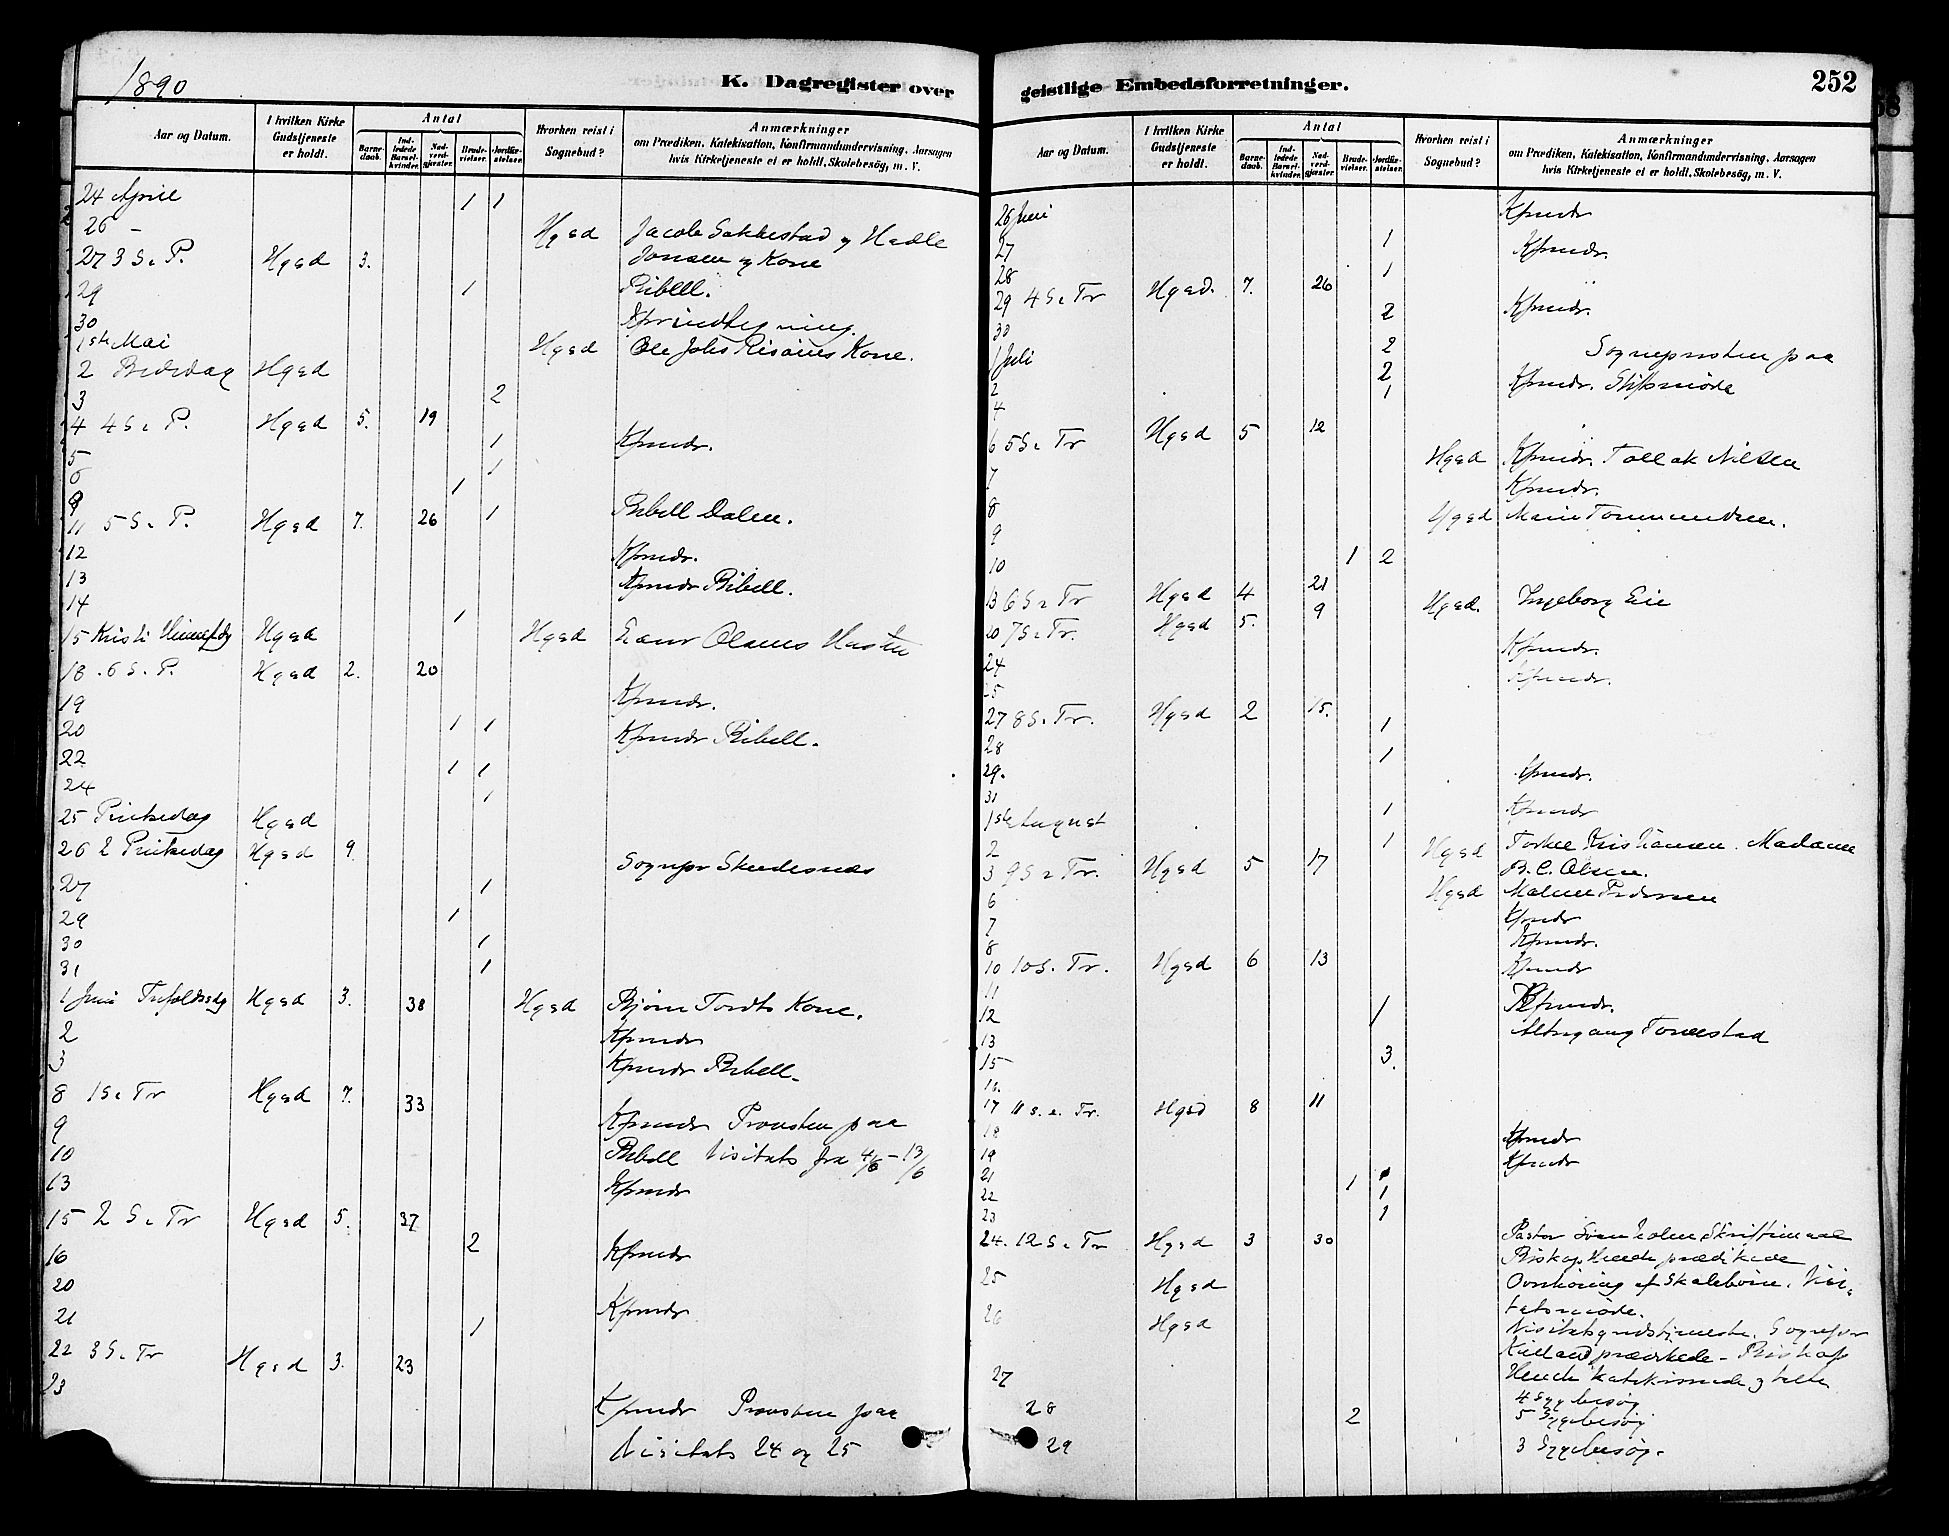 1890
K. Dagregister over
Aar og Datum. | I hvilken Kirke Gudstjeneste er holdt. | Antal | Barnedaab. | Indledede Barselkvinder. | Nadverdgjæster. | Brudevielser. | Jordfæstelser. | Hvorhen reist i Sognebud? | Anmærkninger om Prædiken, Katekisation, Konfirmandundervisning, Aarsagen hvis Kirketjeneste ei er holdt, Skolebesög, m. V.
24 April 1 1
26 - Hgsd Jacob Sakkestad og Helle
27 3 S. e P. Hgsd 3. Jonsen og Kone
29 1 Bibell.
30 Kfrindtegning.
1ste Mai Hgsd Ole Johs Risøines Kone.
2 Bededag Hgsd
3 2
4 4 S. e P. Hgsd 5. 19
5 1 Kfrmdr.
6 1
9 1
11 5 S. e P. Hgsd 7. 26 1 Bibell Dalen.
12 Kfrmdr.
13 Kfrmdr Bibell.
14 1
15 Kristi Himmelfdg Hgsd Hgsd Olsens
18. 6 S. e P. Hgsd 2. 20
19 Kfrmdr.
20 1 1 Kfrmdr Bibell.
22 1 1
24 1
25 Pintsedag Hgsd
26 2 Pintsedag Hgsd 9 Sognepr Skudesnæs
27 1
29 1
30 1
31 1
1 Juni Trefoldsdg Hgsd 3. 38 Hgsd Bjørn Tordts Kone.
2 Kfrmdr
3 Kfrmdr Bibell.
8 1 S. e Tr Hgsd 7. 33
9 Kfrmdr Provsten paa
10 Bibell Visitats fra 4/6 - 13/6
13 Kfrmdr
15 2 S. e Tr Hgsd 5. 37
16 2 Kfrmdr
20
21 1 Kfrmdr
22 3 S. e Tr Hgsd 3. 23
23 Kfrmdr Provsten paa
Visitats 24 og 25
geistlige Embedsforretninger. 252
Aar og Datum. | I hvilken Kirke Gudstjeneste er holdt. | Antal | Barnedaab. | Indledede Barselkvinder. | Nadverdgjæster. | Brudevielser. | Jordfæstelser. | Hvorhen reist i Sognebud? | Anmærkninger om Prædiken, Katekisation, Konfirmandundervisning, Aarsagen hvis Kirketjeneste ei er holdt, Skolebesög, m. V.
26 Juni Kfrmdr
27 1 Kfrmdr.
28 1
29 4 S. e Tr Hgsd. 7. 26
30 2 Kfrmdr.
1 Juli 2 Sognepresten paa
2 2 Kfrmdr. Stiftsmøde
4 1
6 5 S. e Tr Hgsd 5 12
7 Hgsd Kfrmdr. Tollak Nilsen
8 Kfrmdr.
9 Hgsd Marie Tommundsen.
10 1 2
13 6 S. e Tr Hgsd 4 21 Hgsd. Ingeborg Eie
20 7 S. e Tr. Hgsd 5. 9
24 Kfrmdr.
25 Kfrmdr.
27 8 S. e Tr. Hgsd 2 15.
28 1
29. 1 Kfrmdr.
31
1ste August 1 Kfrmdr
2 1 Hgsd Torkel Kristiansen. Madame
3 9 S. e Tr. Hgsd 5 17 B. C. Olsen.
6 Hgsd Malene Pedersen
7 Kfrmdr
8 Kfrmdr.
10 10 S. e Tr. Hgsd 6 13 Kfrmdr
11 Kfrmdr.
12 1 Altergang Tonnestad
13
15 3.
16.
17 11 S. e. Tr. Hgsd 8 11
18 Kfrmdr
19 Kfrmdr
21 1
22 1
23 1
24. 12 S. e Tr Hgsd 3 30 Pastor Svenholm Skriftemaal
Biskop Heuch prædikede
25 Hgsd Overhøring af Skolebørn. Visi-
tatsmøde.
26 Hgsd Visitatsgudstjeneste. Sognepr
Kielland prædikede - Biskop
27 Heuch katekiserede og talte
4 Sygebesøg
28 2 5 Sygebesøg
29 3 Sygebesøg.